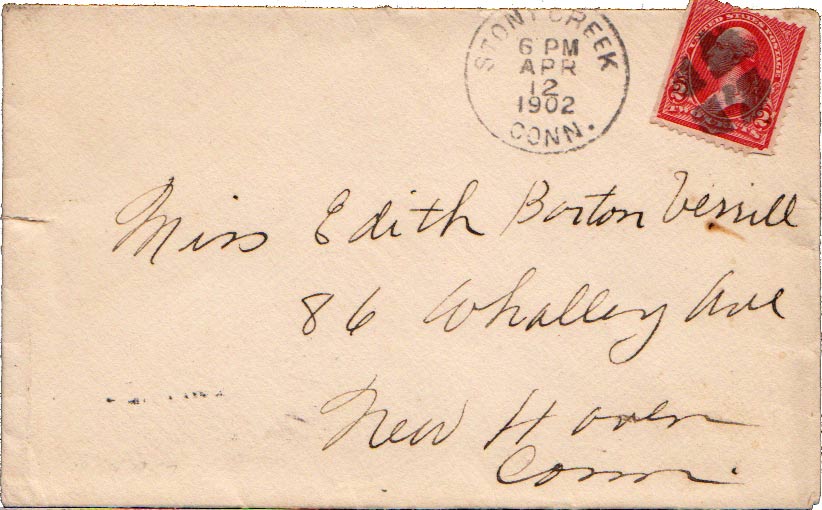 STONY CREEK
6 PM
APR
12
1902
CONN.
UNITED STATES POSTAGE
2 2
TWO CENTS
Miss Edith Barton Verrill
86 Whalley Ave
New Haven
Conn.